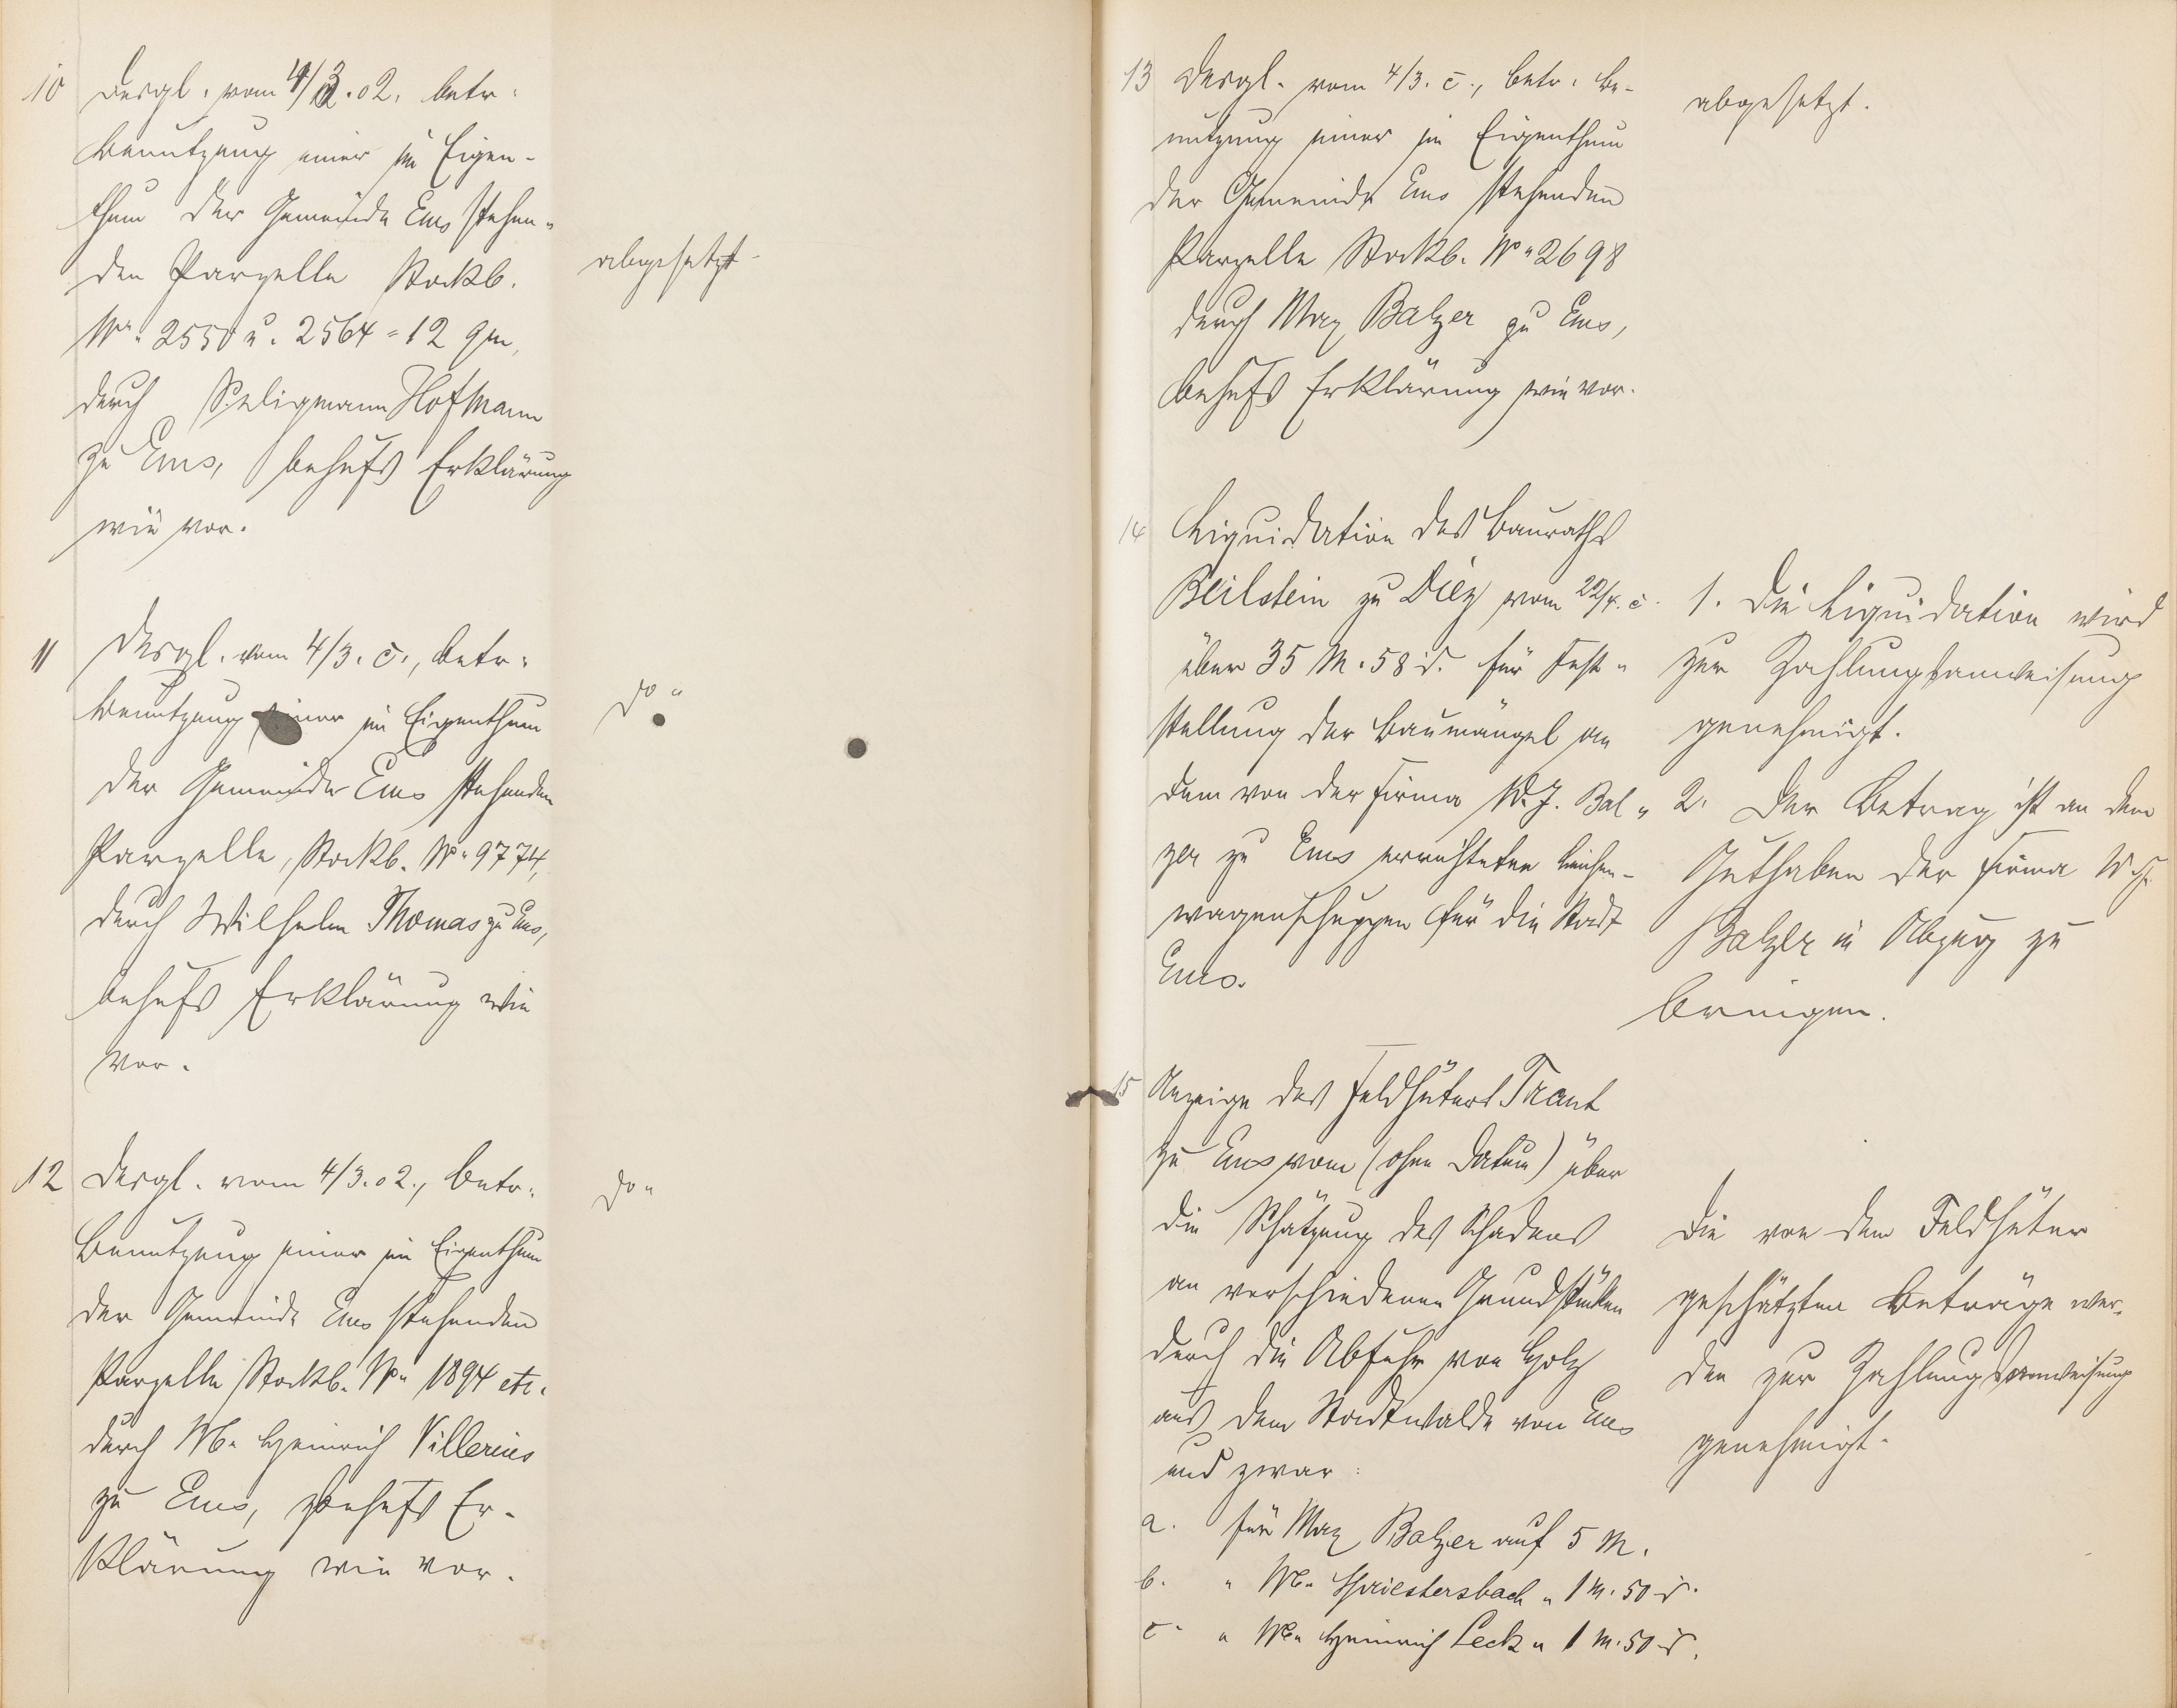 10 desgl. vom 4/3.02. betr.
Benutzung einer im Eigen-
thum der Gemeinde Ems stehen-
den Parzelle Stockb.
abgesetzt.
Nr. 2550 u. 2564 = 12 qm,
durch Seligmann Hofmann
zu Ems, behufs Erklärung
wie vor.
11 desgl. vom 4/3. c., betr.
do.
Benutzung einer im Eigenthum
der Gemeinde Ems stehenden
Parzelle, Stockb. Nr. 9774,
durch Wilhelm Thomas zu Ems,
behufs Erklärung wie
vor.
12 desgl. vom 4/3.02., betr.
do.
Benutzung einer im Eigenthum
der Gemeinde Ems stehenden
Parzelle Stockb. Nr. 1894 etc.
durch Wb. Heinrich Villerius
zu Ems, behufs Er-
klärung wie vor.
13 desgl. vom 4/3. c., betr. Be-
abgesetzt.
nutzung einer im Eigenthum
der Gemeinde Ems stehenden
Parzelle Stockb. Nr. 2698
durch Max Balzer zu Ems,
behufs Erklärung wie vor.
14 Liquidation des Bauraths
Beilstein zu Diez vom 22/4. c.
über 35 M. 58 d. für Fest-
stellung der Baumängel an
dem von der Firma W. J. Bal-
zer zu Ems errichteten Leichen-
wagenschuppen für die Stadt
Ems.
1. Die Liquidation wird
zur Zahlungsanweisung
genehmigt.
2. Der Betrag ist an dem
Guthaben der Firma W. J.
Balzer in Abzug zu
bringen.
15 Anzeige des Feldhüters Traut
zu Ems vom (ohne Datum) über
die Schätzung des Schadens
an verschiedenen Grundstücken
durch die Abfuhr von Holz
aus dem Stadtwalde von Ems
und zwar:
a. für Max Balzer auf 5 M.
b. " Wb. Griestersbach " 1 M. 50 d.
c. " Wb. Heinrich Leck " 1 M. 50 d.
Die von dem Feldhüter
geschätzten Beträge wer-
den zur Zahlungsanweisung
genehmigt.